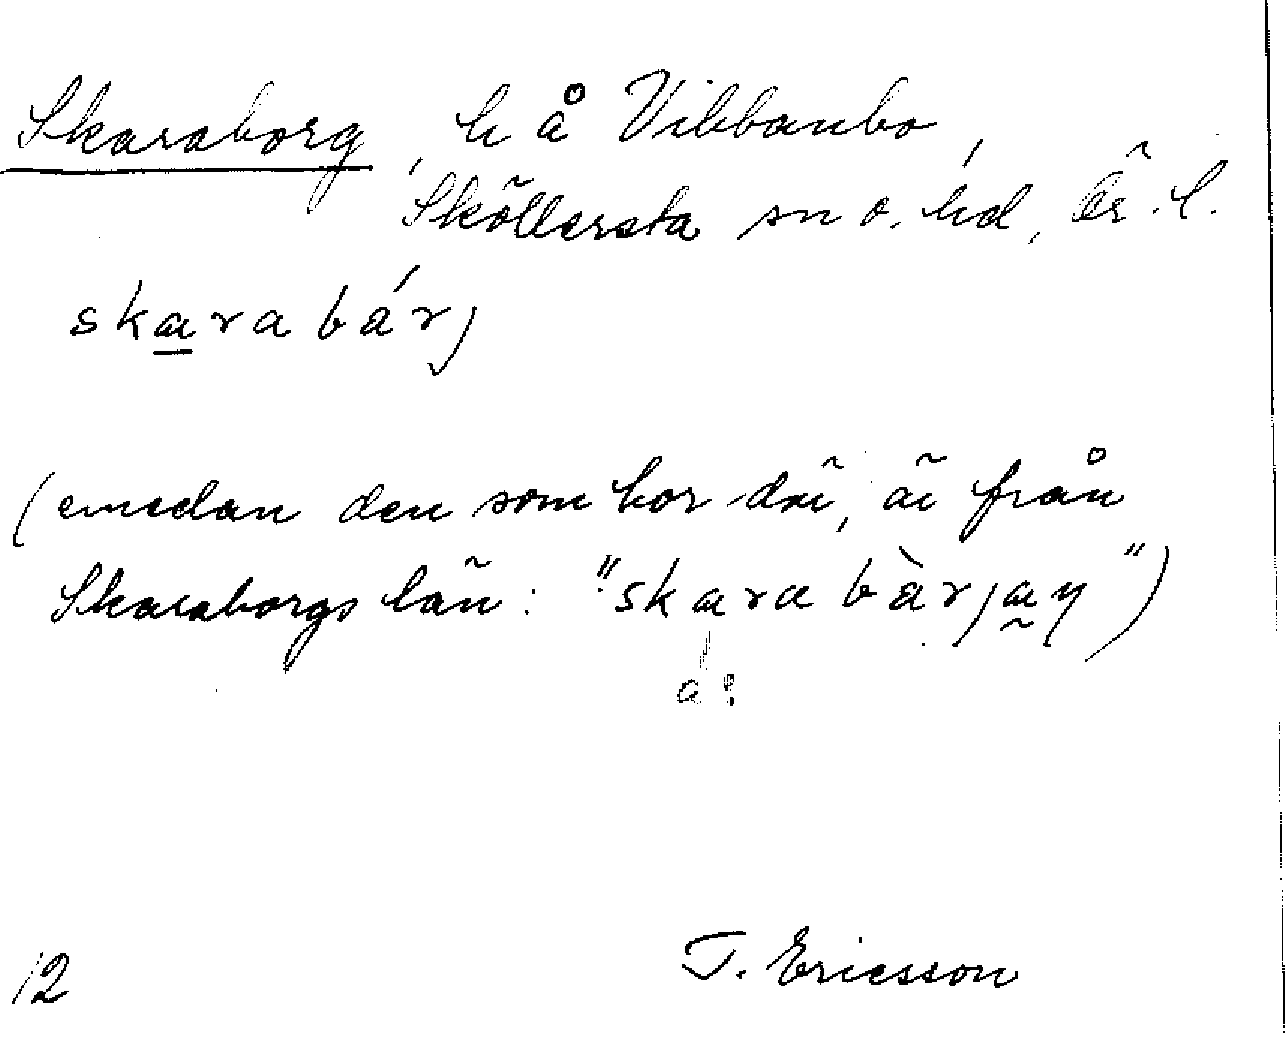 Skaraborg, h å Vibbanbo,
Sköllersta sn o. hd, Ör. l.
skarabárj
(emedan den som bor där, är från
Skaraborgs län: "skarabàrjaŋ")
a:
12 T. Ericsson